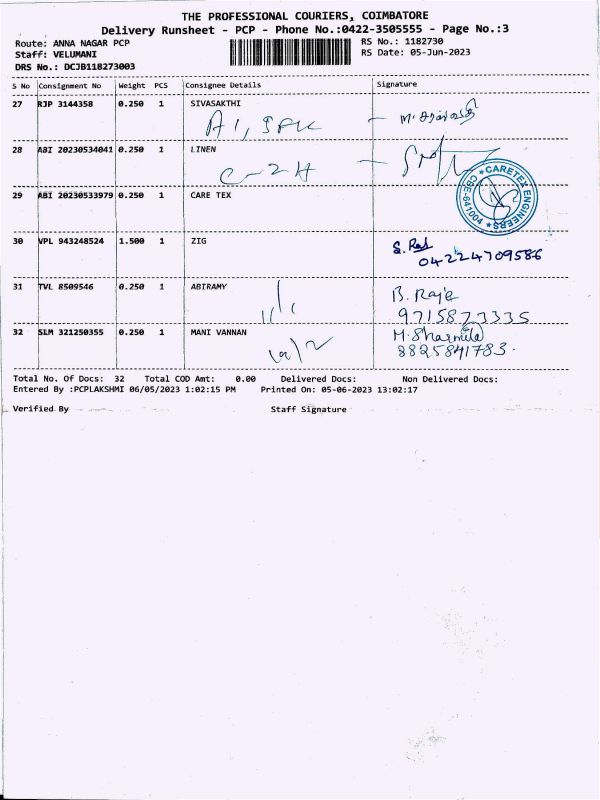 THE PROFESSIONAL COURIERS, COIMBATORE
Delivery Runsheet - PCP - Phone No.:0422-3505555 - Page No.:3
Route: ANNA NAGAR PCP
Staff: VELUMANI
DRS No.: DCJB118273003
RS No.: 1182730
RS Date: 05-Jun-2023
S No Consignment No Weight PCS Consignee Details Signature
27 RJP 3144358 0.250 1 SIVASAKTHI
28 ABI 20230534041 0.250 1 LINEN
29 ABI 20230533979 0.250 1 CARE TEX
CARETEX ENGINEERS
CBE-641004
30 VPL 943248524 1.500 1 ZIG
04224709586
31 TVL 8509546 0.250 1 ABIRAMY
B. Raja
9715873335
32 SLM 321250355 0.250 1 MANI VANNAN
M. Sharmila
8825841783.
Total No. Of Docs: 32 Total COD Amt: 0.00 Delivered Docs: Non Delivered Docs:
Entered By :PCPLAKSHMI 06/05/2023 1:02:15 PM Printed On: 05-06-2023 13:02:17
Verified By Staff Signature